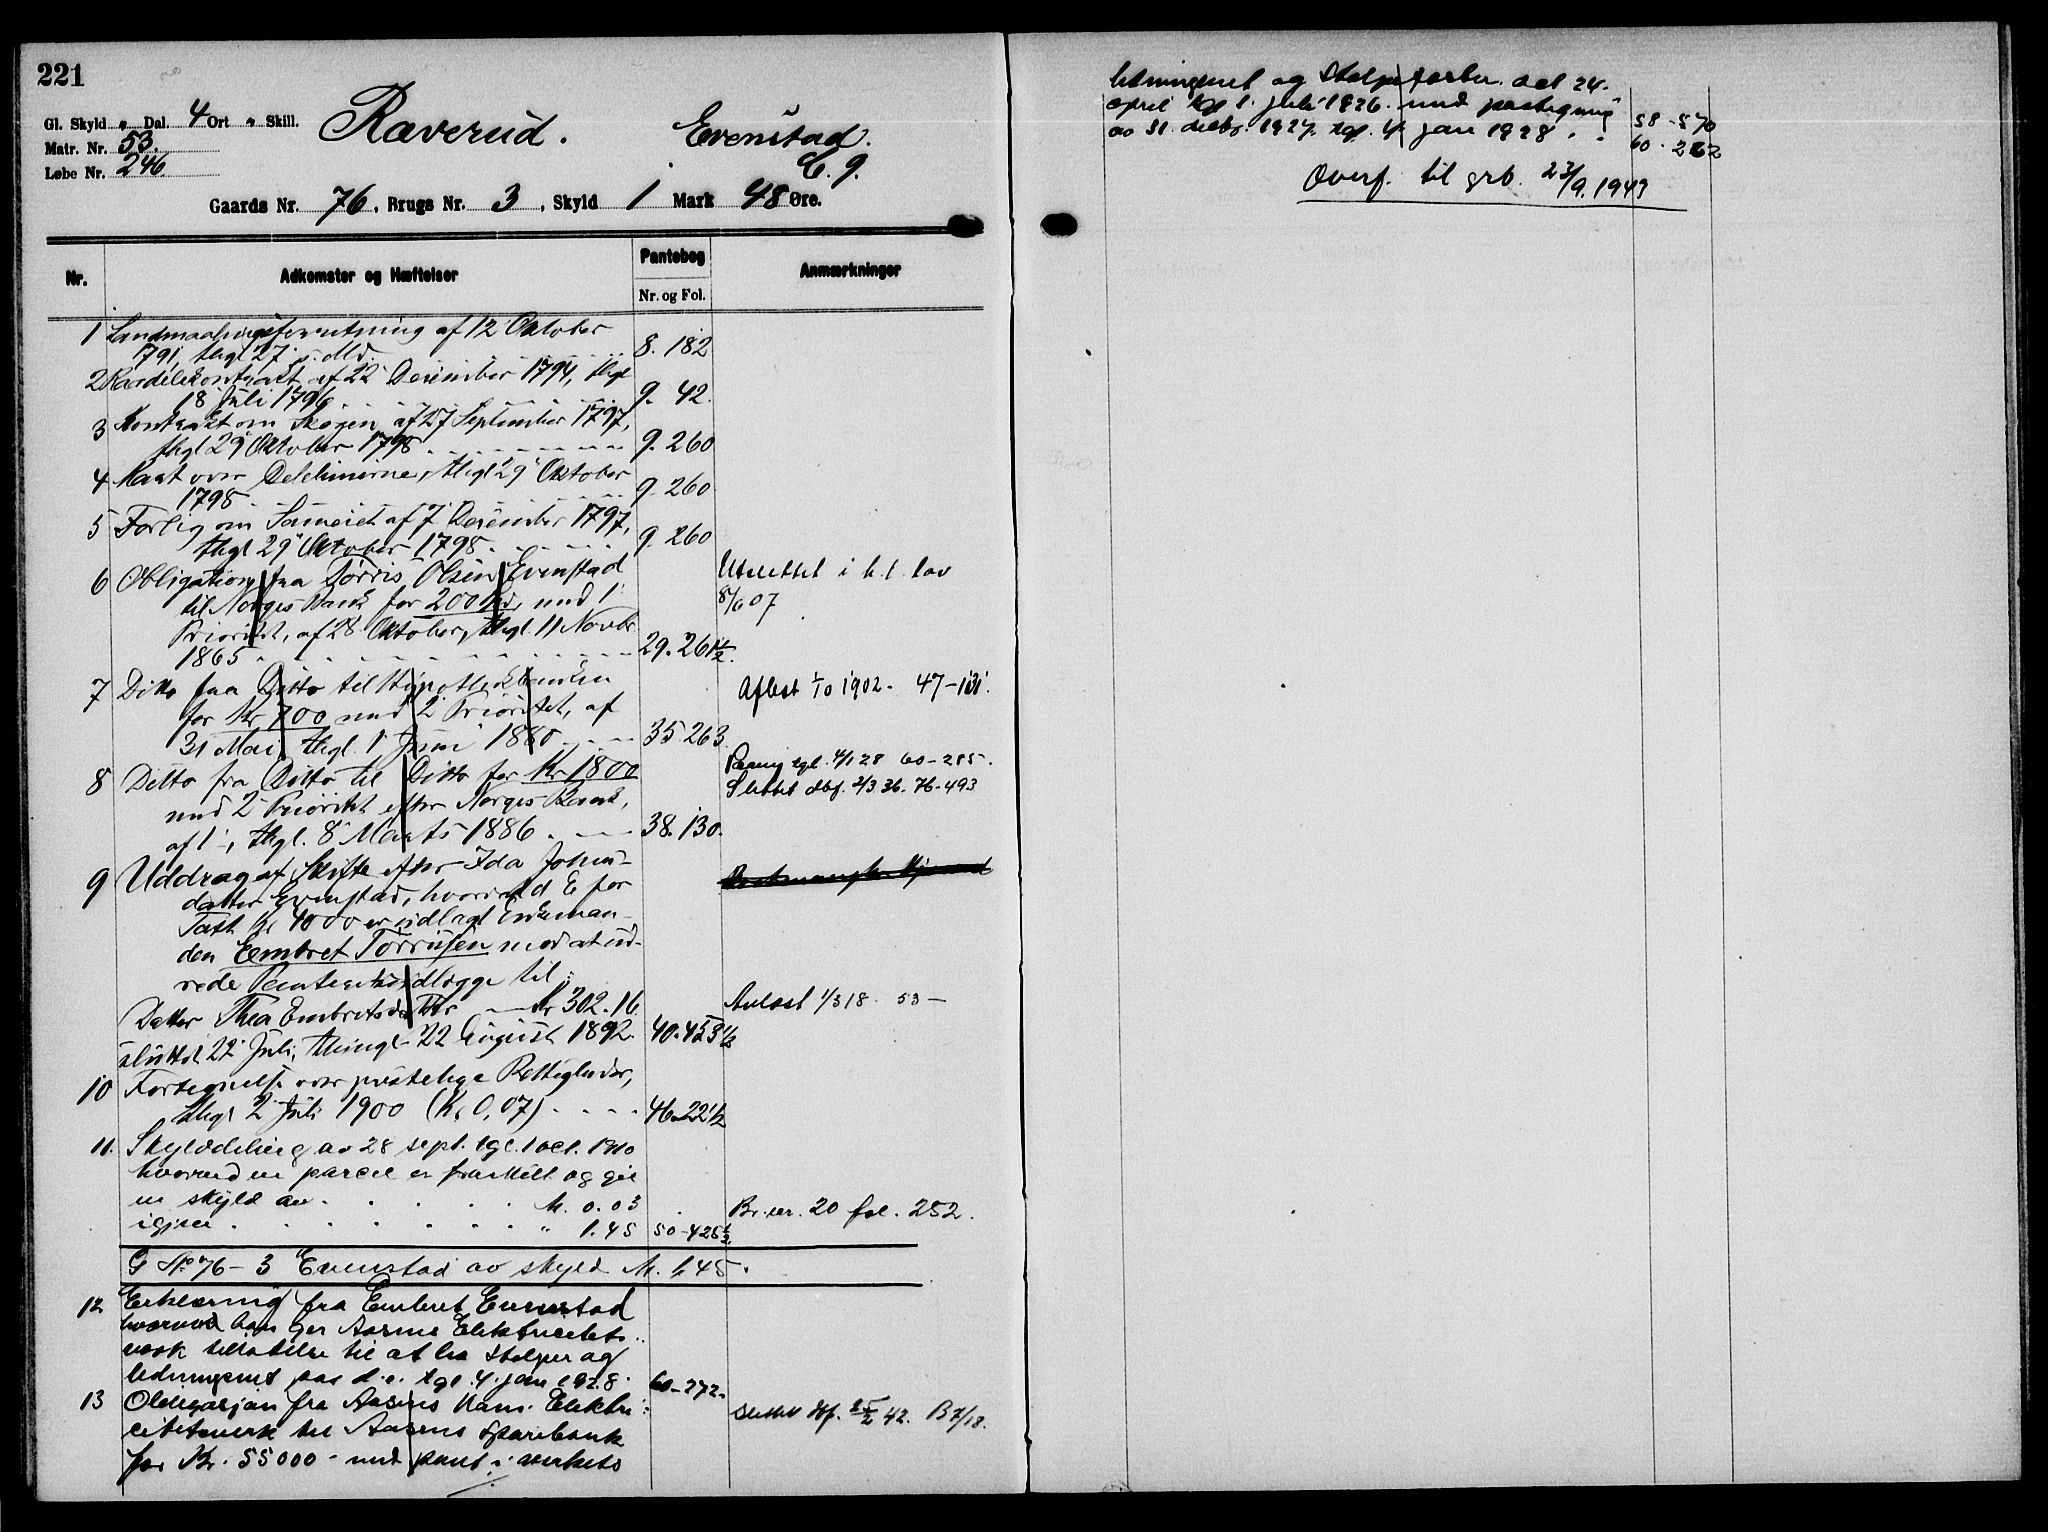 221
Gl. Skyld " Dal. 4 Ort " Skill.
Matr. Nr. 53.
Løbe Nr. 246.
Raverud. Evenstad.
C. 9.
Gaards Nr. 76, Brugs Nr. 3, Skyld 1 Mark 48 Øre.
Nr. Adkomster og Hæftelser Pantebog Anmærkninger
Nr. og Fol.
1 Landmaalingsforretning af 12' Oktober
1791, thgl 27' s. Md. 8. 182
2 Kardelekontrakt af 22' December 1794, thgl
18' Juli 1796 9. 42.
3 Kontrakt om Skogen af 27 September 1797,
thgl 29' Oktober 1798 9. 260
4 Kart over Delelinierne, thgl 29' Oktober
1798 9. 260
5 Forlig om Sameiet af 7' December 1797,
thgl 29' Oktober 1798 9. 260
6 Obligation fra Torris Olsen Evenstad
til Norges Bank for 200 Spd, med 1'
Prioritet, af 28' Oktober, thgl. 11 Novbr
1865 29. 261 1/2.
Utslettet i h.t. lov
8/6 07
7 Ditto fra Ditto til Hypothekbanken
for Kr 700 med 2' Prioritet, af
31 Mai, thgl. 1' Juni 1880 35 263.
Aflest 1/10 1902. 47-131.
8 Ditto fra Ditto til Ditto for Kr 1800
med 2' Prioritet efter Norges Bank,
af 1', thgl. 8' Marts 1886 38. 130.
tgl. 4/1 28 60-285.
Slettet dbf. 2/3 36. 76-493
9 Uddrag af Skifte efter Ida Johns-
datter Evenstad, hvorved E for
Taxt Kr 4000 er udlagt Enkeman-
den Embret Torrisen mod at ud-
rede Rentefrit udlægge til
Datter Thea Embretsdatter Kr 302.16
sluttet 22' Juli, thingl 22 August 1892. 40. 453 1/2
Avlæst 1/3 18. 53-
10 Fortegnelse over prestelige Rettigheder,
thgl 2' Juli 1900 (Kr 0,07) 46-221 1/2
11. Skylddeling av 28 sept. tgl. 1 oct. 1910
hvorved en parcel er fraskilt og git
en skyld av M. 0.03
igjen " 1.45 50-425 1/2
Br. nr. 20 fol. 252.
G No 76-3 Evenstad av skyld M. 1.45.
12 Erklæring fra Embret Evenstad
hvorved han gir Aasnes Elektricitets-
verk tillatelse til at ha stolper og
ledningsnet paa d.e. tgl. 4. jan 1928. 60-272.
13 Obligasjon fra Aasnes Kom. Elektri-
citetsverk til Aasnes Sparebank
for Kr. 55000.- med pant i verkets
Slettet dbf. 25/2 42. B 7/18.
ledningsnet og Stolpefester dat 24.
april tgl 1. juli 1926 med paategning
av 31. decbr. 1927. tgl. 4. jan 1928. 58-570
60-262
Overf. til grb. 23/9. 1943